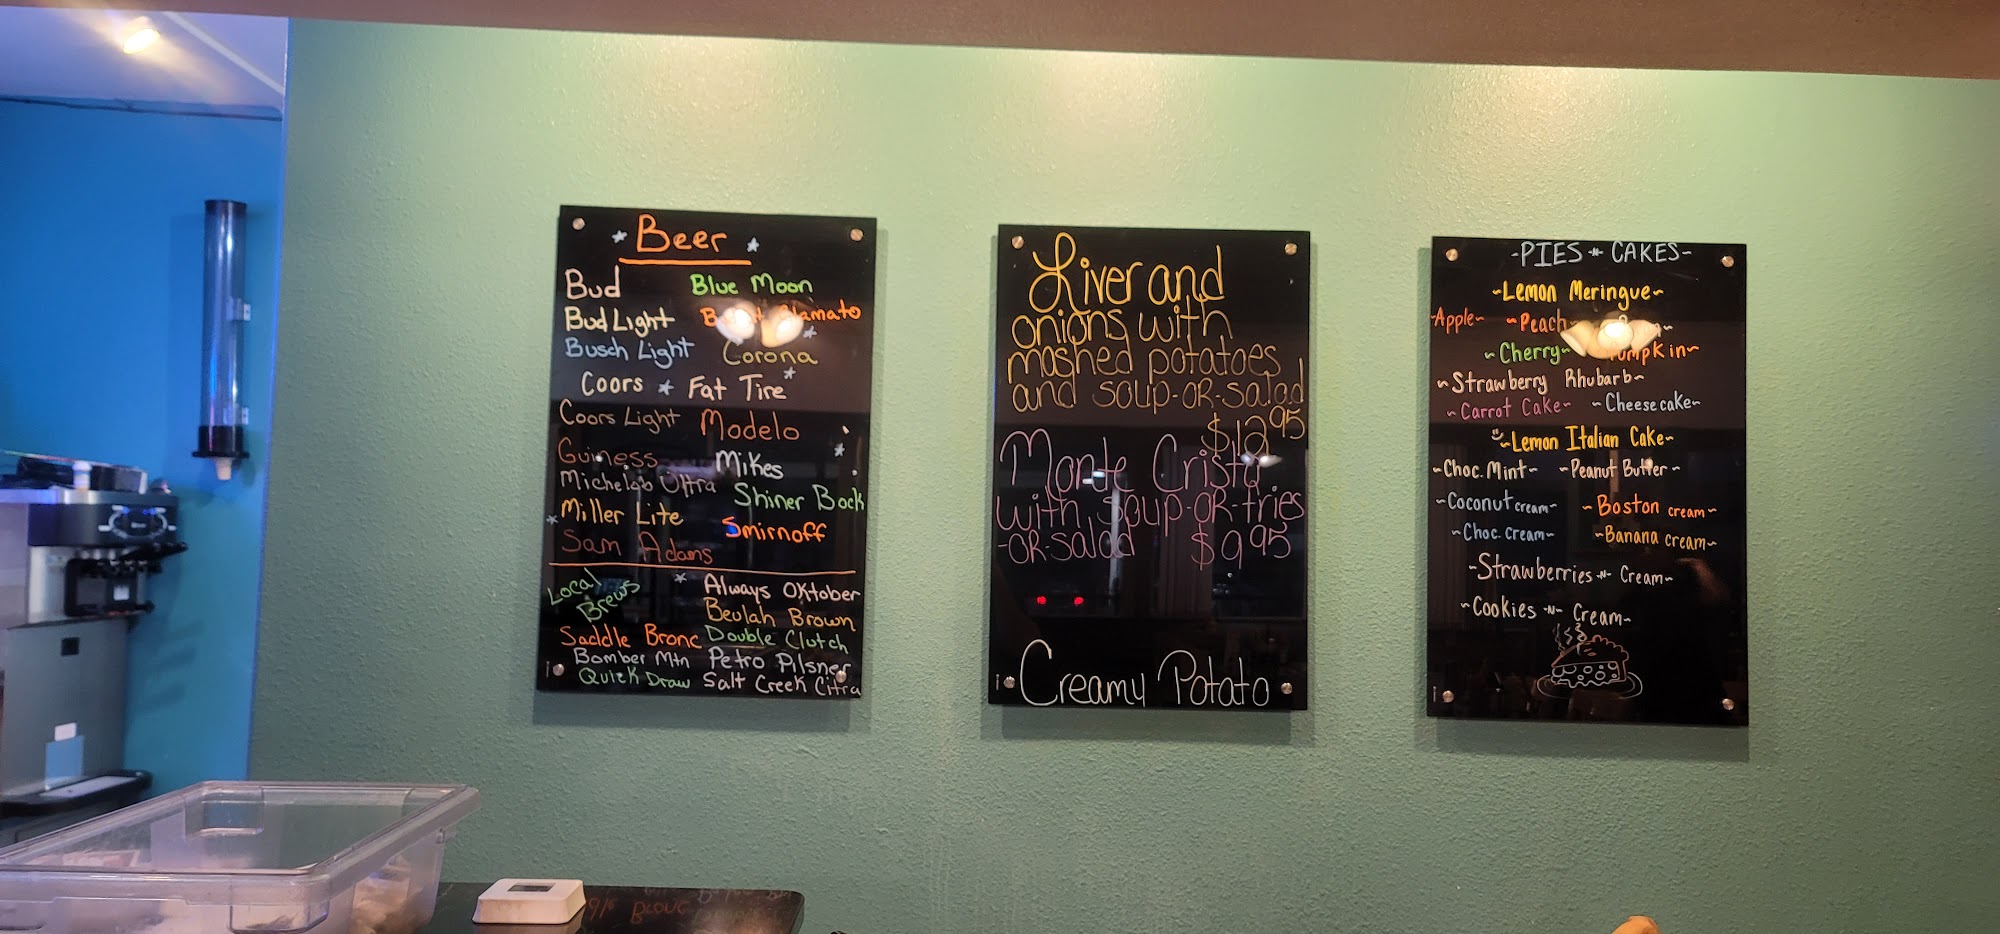 Beer
Bud Blue Moon
Bud Light Clamato
Busch Light Corona
Coors Fat Tire
Coors Light Modelo
Guiness Mikes
Michelob Ultra Shiner Bock
Miller Lite Smirnoff
Sam Adams
Local Brews
Always Oktober
Beulah Brown
Saddle Bronc Double Clutch
Bomber Mtn Petro Pilsner
Quick Draw Salt Creek Citra
Liver and
onions with
mashed potatoes
and soup-OR-salad
$12.95
Monte Cristo
with soup-OR-fries
-OR-salad $9.95
Creamy Potato
-PIES-N-CAKES-
~Lemon Meringue~
Apple~ ~Peach~
~Cherry~ Pumpkin~
~Strawberry Rhubarb~
~Carrot Cake~ ~Cheesecake~
~Lemon Italian Cake~
~Choc. Mint~ ~Peanut Butter~
~Coconut cream~ ~Boston cream~
~Choc. cream~ ~Banana cream~
~Strawberries-N-Cream~
~Cookies-N-Cream~